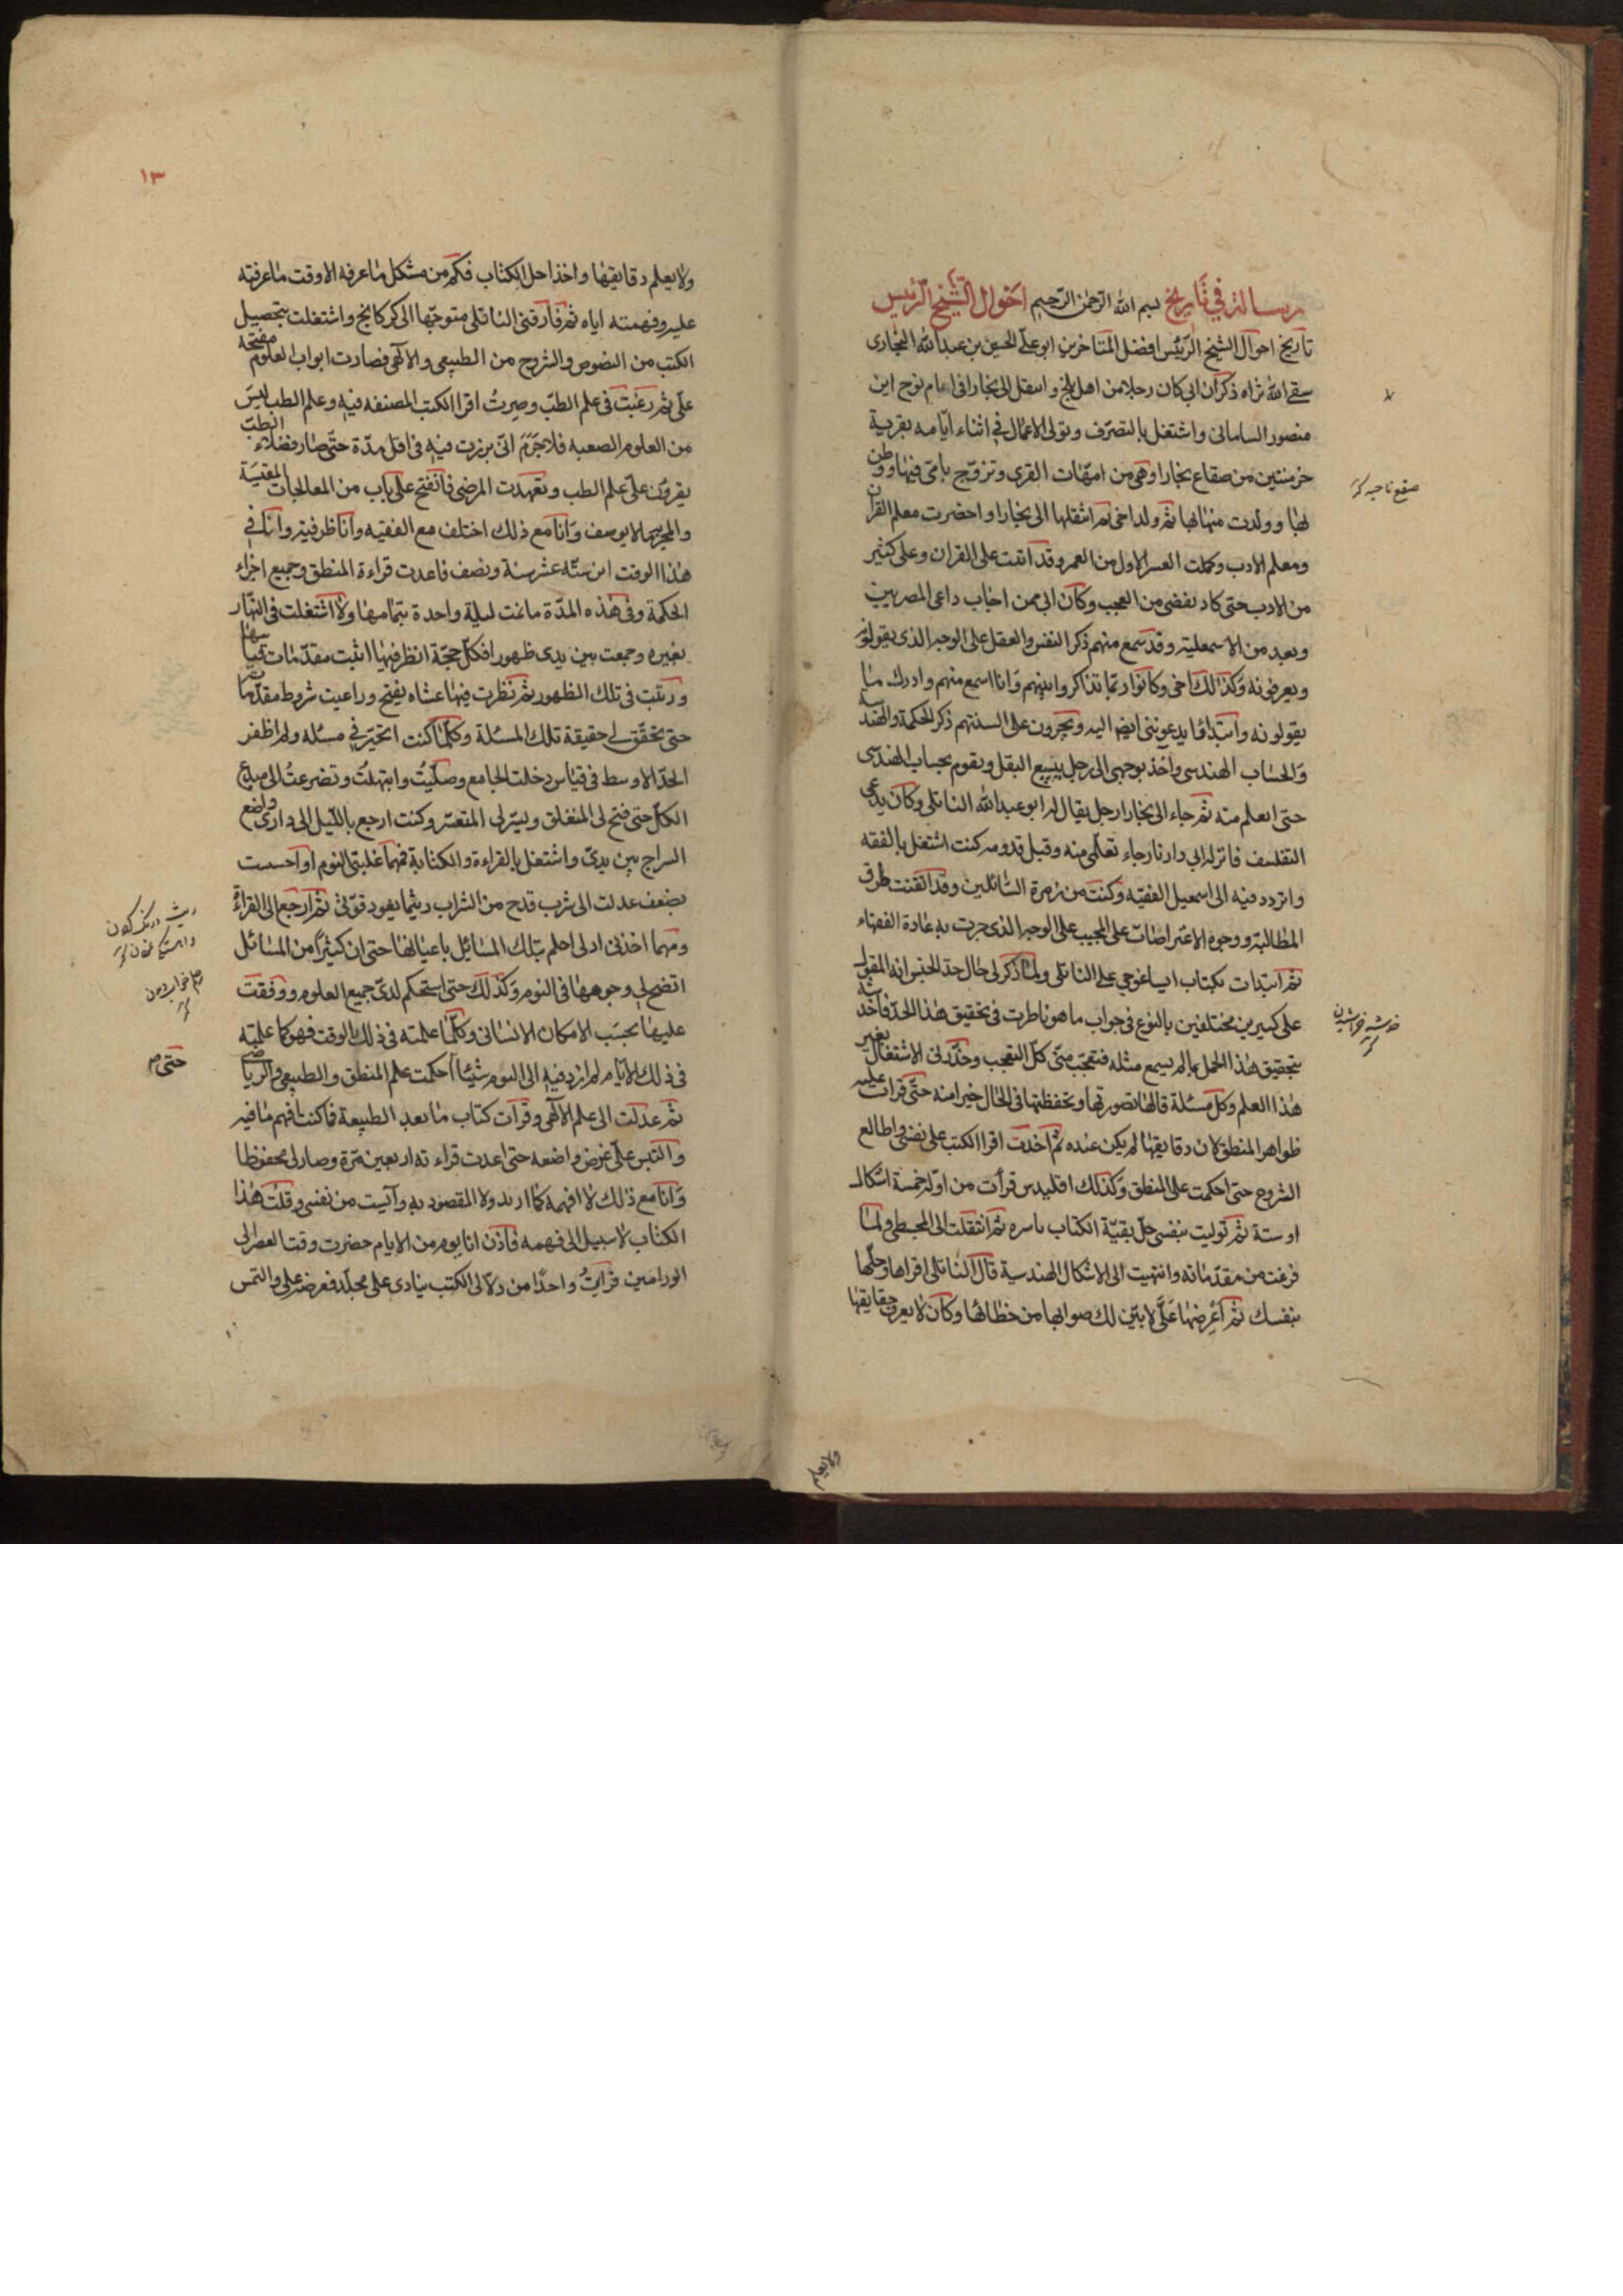 رسالة في تاريخ بسم الله الرحمن الرحيم احوال الشيخ الرئيس
تاريخ احوال الشيخ الرئيس افضل المتاخرين ابو علي الحسين بن عبد الله البخارى
سقى الله ثراه ذكر ان ابى كان رجلا من اهل بلخ و انتقل الى بخارا فى ايام نوح ابن
منصور السامانى و اشتغل بالتصرف و تولى الاعمال فى اثناء ايامه بقرية
خرمثين من صقاع بخارا و هى من امهات القرى و تزوج بامى فيها و وطن
بها و ولدت منها بها ثم ولد اخى ثم انتقلها الى بخارا و احضرت معلم القران
و معلم الادب و كملت العشر الاول من العمر و قد اتيت على القران و على كثير
من الادب حتى كاد يقضى من العجب و كان ابى ممن اجاب داعى المصريين
و يعد من الاسمعيلية و قد سمع منهم ذكر النفس و العقل على الوجه الذى يقولونه
و يعرفونه و كذالك اخى و كانوا ربما تذاكروا بينهم و انا اسمع منهم و ادرك ما
يقولونه و ابتداؤا يدعوننى ايضا اليه و يجرون على السنتهم ذكر الحكمة و الهندسة
و الحساب الهندسى و اخذ يوجهى الى رجل يبيع البقل و يقوم بحساب الهندسى
حتى اتعلم منه ثم جاء الى بخارا رجل يقال له ابو عبد الله الناتلى و كان يدعى
التفلسف فانزله ابى دارنا رجاء تعلمى منه و قبل قدومه كنت اشتغل بالفقه
و اتردد فيه الى اسمعيل الفقيه و كنت من زمرة السائلين و قد اتقنت طرق
المطالبة و وجوه الاعتراضات على المجيب على الوجه الذى جرت به عادة الفقهاء
ثم ابتدات بكتاب ايساغوجى على الناتلى و لما ذكر لى حال حد الجنس انه المقول
على كثيرين مختلفين بالنوع فى جواب ما هو ناظرت فى تحقيق هذا الحد فاخذته
بتحقيق هذا الحمل بما لم يسمع مثله فتعجب منى كل التعجب و حذرنى الاشتغال بغير
هذا العلم و كل مسئلة قالها تصورتها و تحفظتها فى الحال خيرا منه حتى قرات عليه
ظواهر المنطق كان دقايقها لم يكن عنده ثم اخذت اقرا الكتب على نفسى و اطالع
الشروح حتى احكمت على المنطق و كذلك اقليدس قرأت من اوله خمسة اشكال
او ستة ثم توليت بنفسى حل بقية الكتاب باسره ثم انتقلت الى المجسطى و لما
فرغت من مقدماته و انتهيت الى الاشكال الهندسية قال الناتلى اقراها و حلها
بنفسك ثم اعرضها على لابين لك صوابها من خطائها و كان لا يعرف حقايقها
ولا يعلم
صقع ناحيه كز
خدشه خراشيدن كز
١٣
ولا يعلم دقايقها و اخذ احل الكتاب فكم من مشكل ما عرفه الا وقت ما عرفته
عليه و فهمته اياه ثم فارقنى الناتلى متوجها الى كركانج و اشتغلت بتحصيل
الكتب من النصوص و الشروح من الطبيعى و الالهى فصارت ابواب العلوم مفتحة
على ثم رغبت فى علم الطب و صرت اقرا الكتب المصنفه فيه و علم الطب ليس
من العلوم الصعبه فلا جرم انى برزت فيه فى اقل مدة حتى صار فضلاء الطب
يقرؤن على علم الطب و تعهدت المرضى فانفتح على باب من المعالجات المقتبسة
و التجربة ما لا يوصف و انا مع ذلك اختلف مع الفقيه و اناظر فيه و انا فى
هذا الوقت ابن ستة عشر سنة و نصف فاعدت قراءة المنطق و جميع اجزاء
الحكمة و فى هذه المدة ما نمت ليلة واحدة بتمامها و لا اشتغلت فى النهار
بغيره و جمعت بين يدى ظهورا فكل حجة انظر فيها اثبت مقدمات قياسها
و رتبت فى تلك الظهور ثم نظرت فيها عساه يفتح و راعيت شروط مقدماته
حتى تحقق لى حقيقة تلك المسئلة و كلما كنت اتحير فى مسئله و لم اظفر
الحد الاوسط فى قياس دخلت الجامع و صليت و ابتهلت و تضرعت الى مبدع
الكل حتى فتح لى المنغلق و يسر لى المتعسر و كنت ارجع بالليل الى دارى و اضع
السراج بين يدى و اشتغل بالقراءة و الكتابة فمهما غلبتى النوم او احسست
بضعف عدلت الى شرب قدح من الشراب ريثما يعود قوتى ثم ارجع الى القراءة
و مهما اخذنى ادنى احلم بتلك المسائل باعيانها حتى ان كثيرا من المسائل
اتضح لى وجوهها فى النوم و كذلك حتى استحكم لدى جميع العلوم و وقفت
عليها بحسب الامكان الانسانى و كلما علمته فى ذلك الوقت فهو كما علمته
فى ذلك الايام لم ازد فيه الى اليوم شيئا احكمت علم المنطق و الطبيعى و الرياضى
ثم عدلت الى علم الالهى و قرات كتاب ما بعد الطبيعة فما كنت افهم ما فيه
و التبس على غرض واضعه حتى اعدت قراءته اربعين مرة و صار لى محفوظا
و انا مع ذلك لا افهمه كما اريد و لا المقصود به و آيست من نفسى و قلت هذا
الكتاب لا سبيل الى فهمه فاذن انا يوم من الايام حضرت وقت العصر الى
الوراقين فرايت واحدا من دلالى الكتب ينادى على مجلد فعرضه على و التمس
حتى م